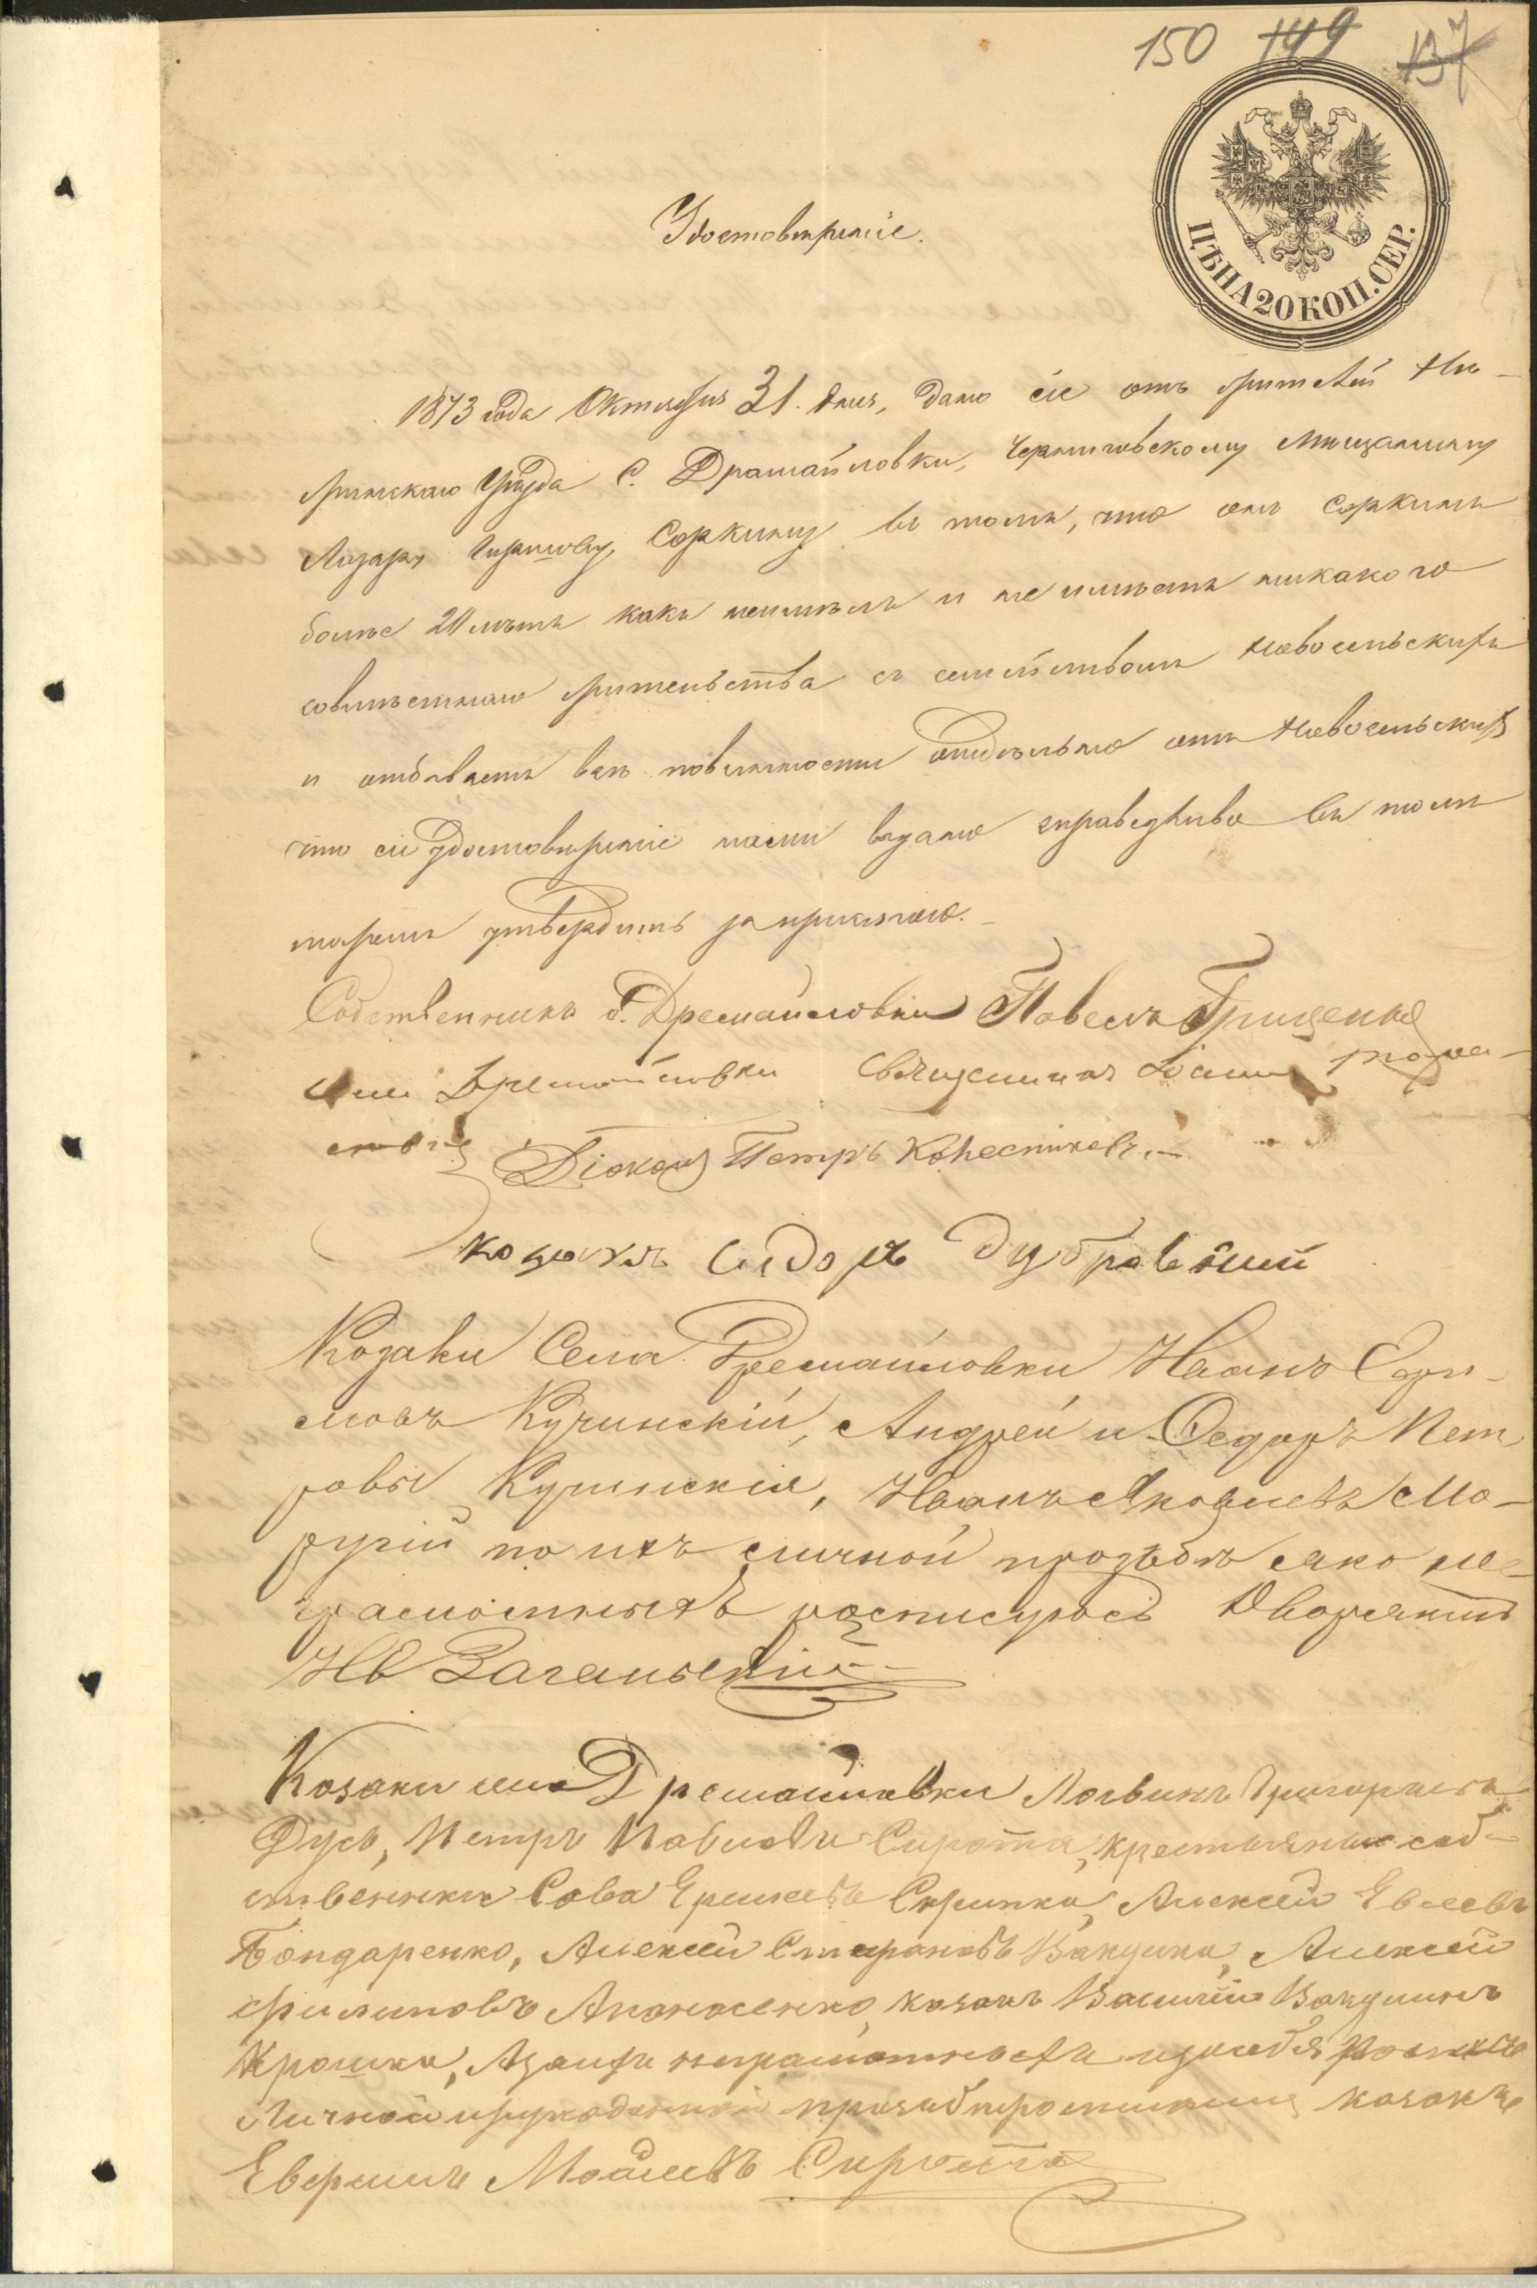 150 149 137
ЦѢНА 20 КОП. СЕР.
Удостовѣреніе.
1873 года Октября 31. дня, дано сіе отъ жителей Нѣ-
жинскаго Уѣзда С. Драмайловки, Черниговскому Мѣщанину
Лазарю Гиршову Соркину въ томъ, что онъ Соркинъ
болѣе 20 лѣтъ какъ неимѣлъ и не имѣетъ никакого
совмѣстнаго жительства съ семействомъ Новосельскихъ
и отбываетъ всѣ повинности отдѣльно отъ Новосельскихъ
что сіе Удостовѣреніе нами выдано справедливо въ томъ
утвердить
Собственникъ с. Дремайловки Павелъ Грищенко
Села Дремайловки Священникъ
Діяконъ Петръ Колесниковъ.
козакъ Сидоръ Дубровскій
Козаки Села Дремайловки Иванъ
Кучинскій, Андрей и Федоръ Пет
ровы Кучинскія, Иванъ Яковлевъ Мо-
ругій по ихъ личной прозьбѣ яко не-
грамотныхъ росписуюсь Дворянинъ
Ив Заганскій
Козаки села Дремайловки Логвинъ Григорьевъ
Дусь, Петръ Павловъ Сирота, крестьяны соб-
ственники Сава Ермѣевъ Скрипка, Алексей Евсеевъ
Бондаренко, Алексей Стефановъ Вакулка, Алексей
Филиповъ Апанасенко, козакъ Василій Вакулинъ
Крошка, а за ихъ неграмотностью
личной козакъ
Моисеевъ Сирота